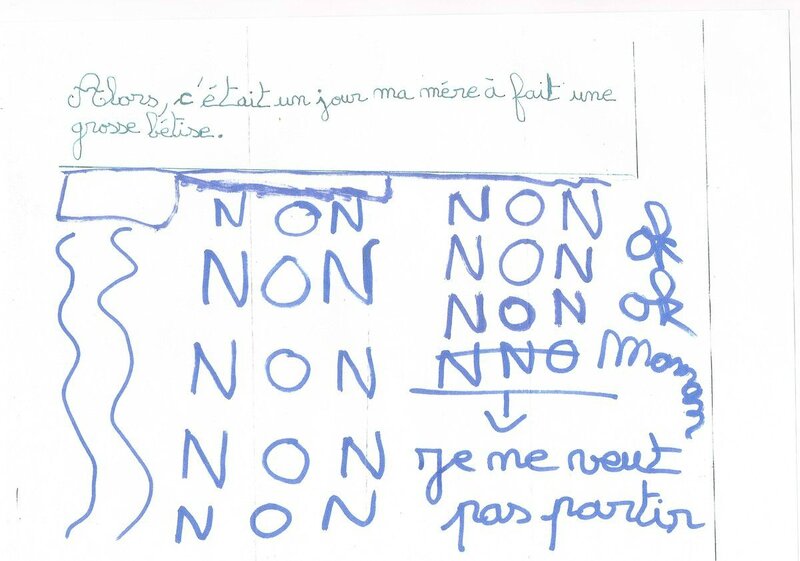 Alors, c'était un jour ma mére à fait une
grosse bétise.
NON
NON
NON
NON
NON
NON
NON
NON
NNO
ok
ok
Maman
je me veut
pas partir